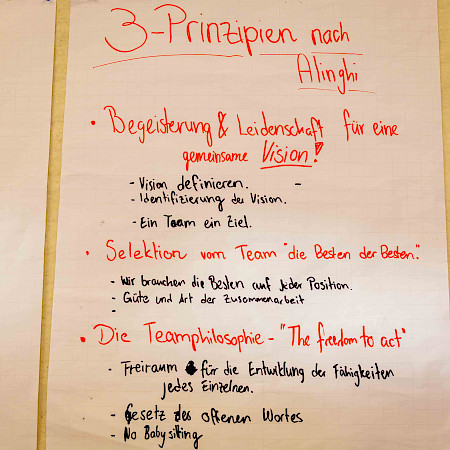 3-Prinzipien nach
Alinghi
• Begeisterung & Leidenschaft für eine
gemeinsame Vision!
- Vision definieren. -
- Identifizierung der Vision.
- Ein Team ein Ziel.
• Selektion vom Team "die Besten der Besten."
- Wir brauchen die Besten auf jeder Position.
- Güte und Art der Zusammenarbeit
-
• Die Teamphilosophie - "The freedom to act"
- Freiraum für die Entwicklung der Fähigkeiten
jedes Einzelnen.
- Gesetz des offenen Wortes
- No Babysitting